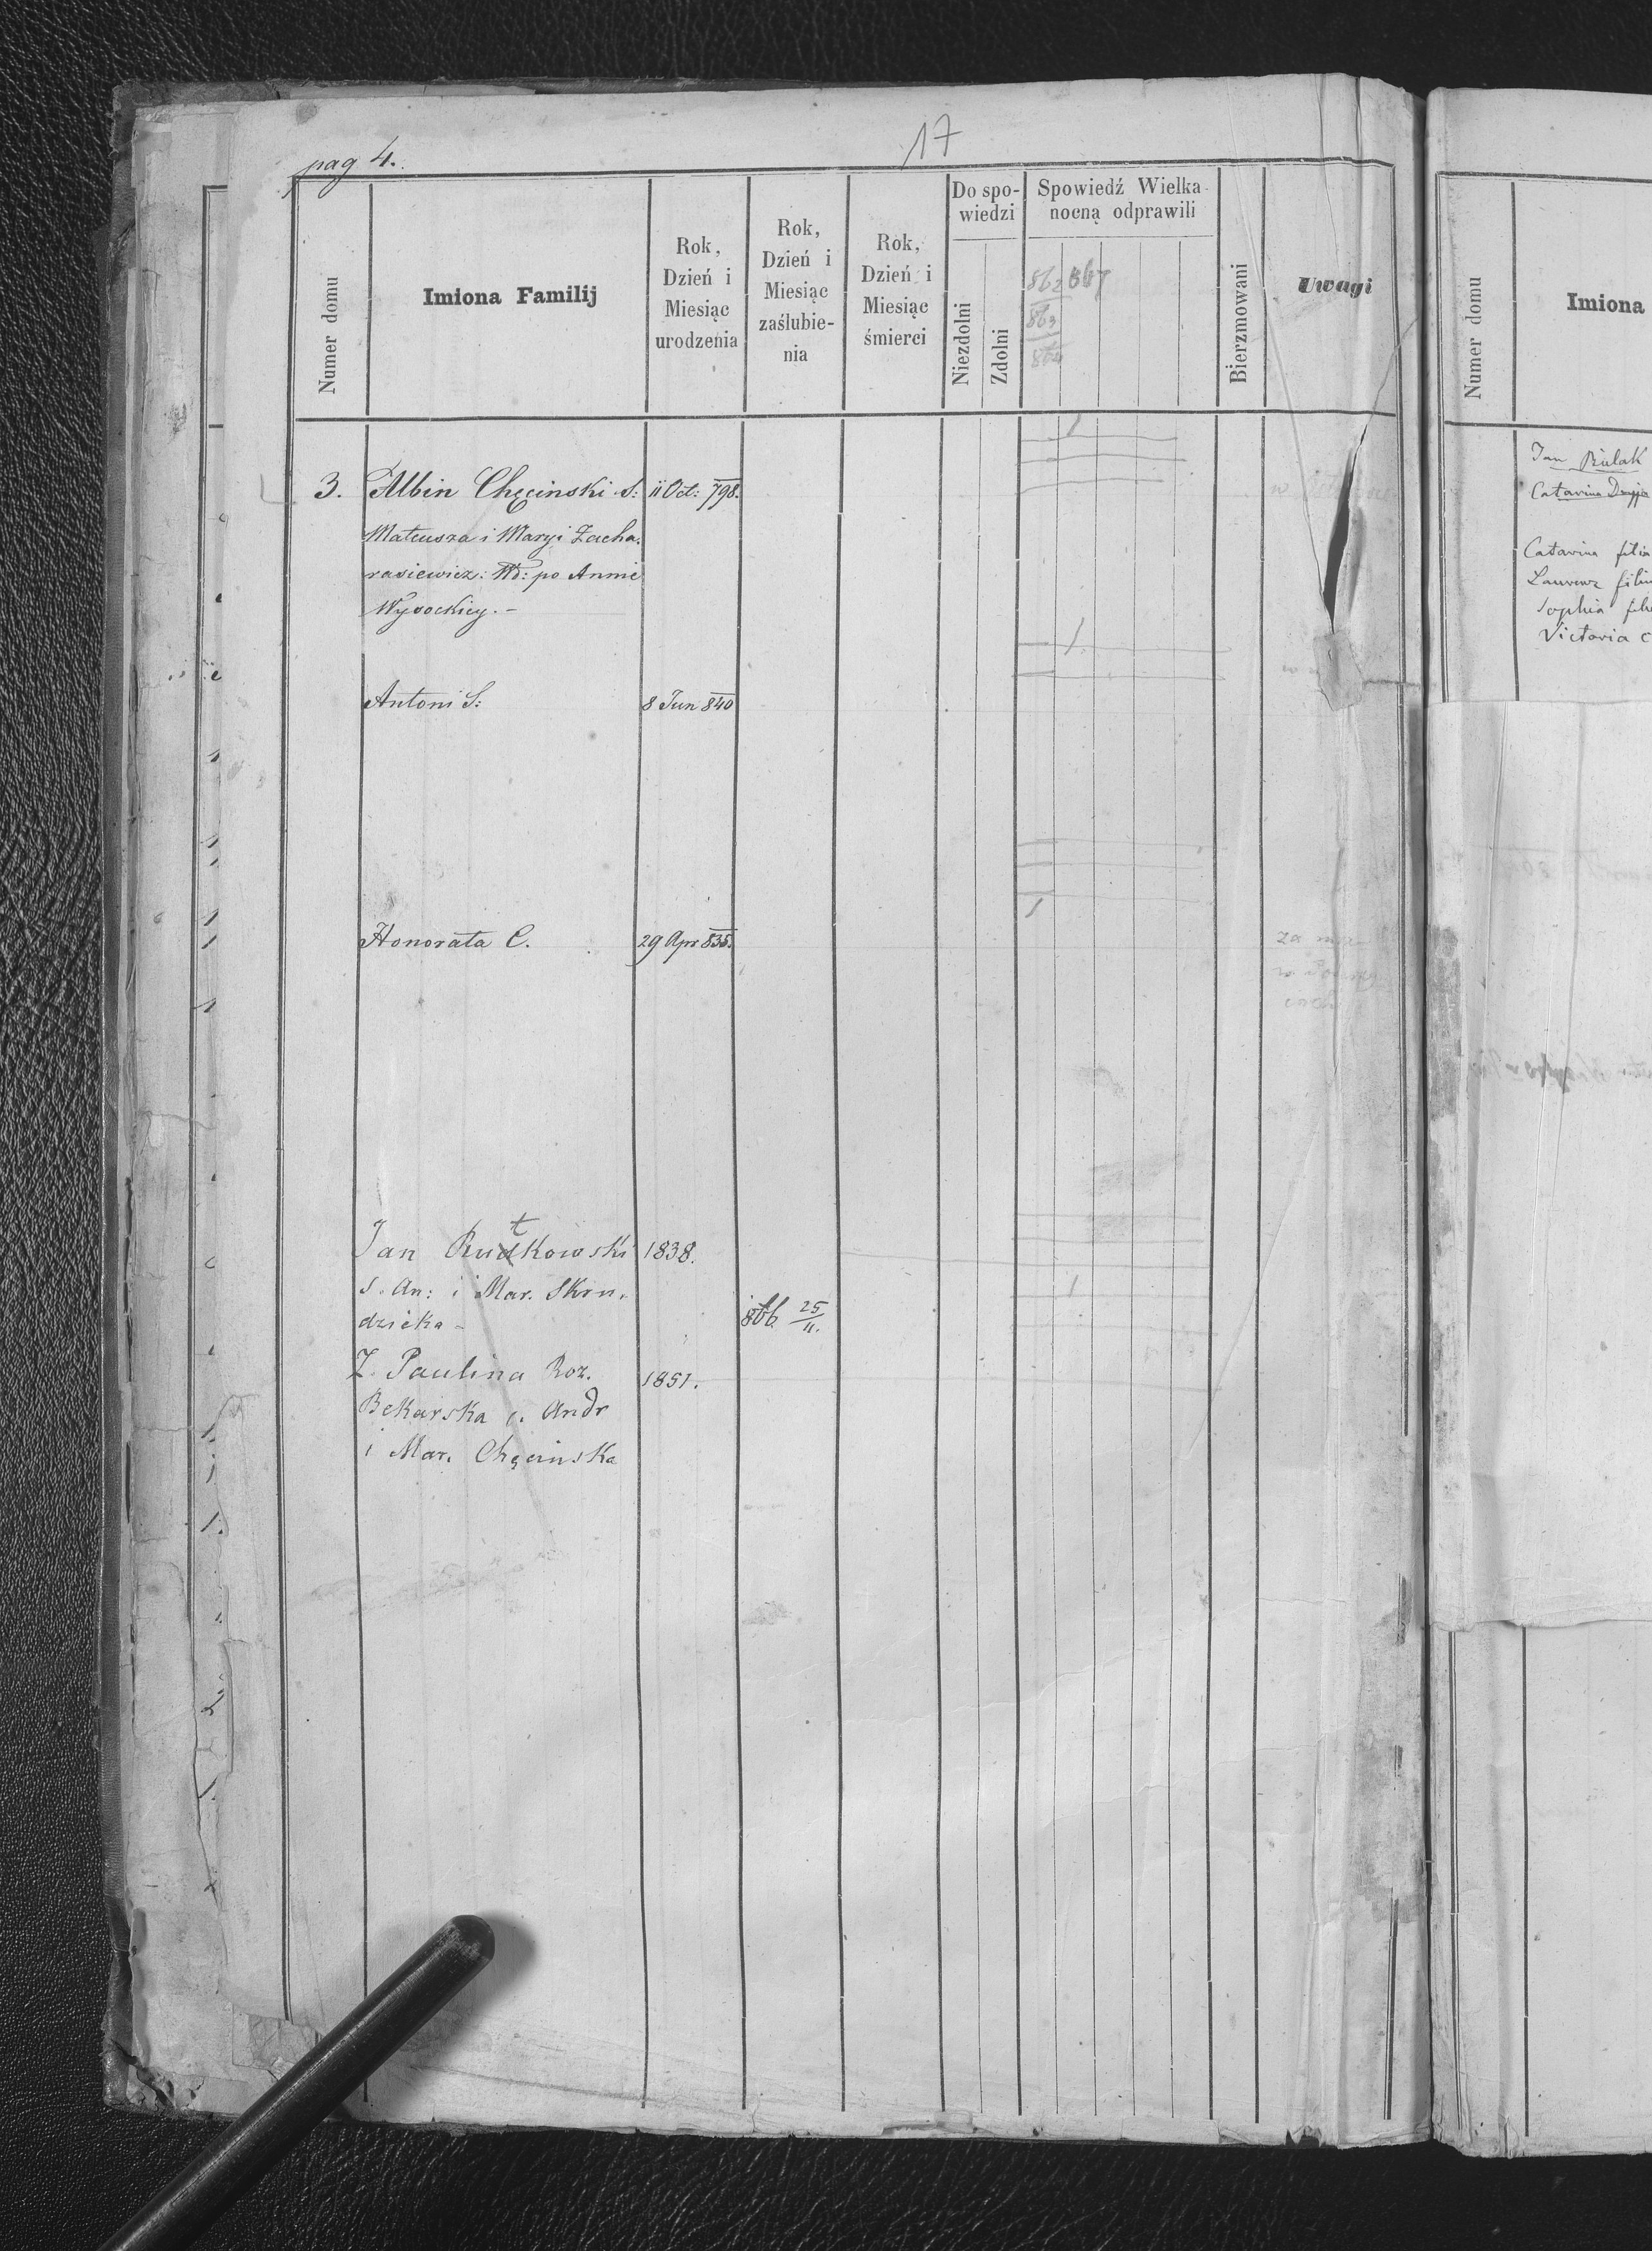 17
pag 4.
Numer domu
Imiona Familij
Rok,
Dzień i
Miesiąc
urodzenia
Rok,
Dzień i
Miesiąc
zaślubie-
nia
Rok,
Dzień i
Miesiąc
śmierci
Do spo-
wiedzi
Niezdolni
Zdolni
Spowiedź Wielka-
nocną odprawili
862 867
863
864
Bierzmowani
Uwagi
3. Albin Chęcinski S: 11 Oct: 798.
Mateusza i Maryi Zacha.
rasiewicz: Wd: po Annie
Wysockiey. -
Antoni S: 8 Jun 840
Honorata C. 29 Apr 835.
za
Jan Rutkowski 1838.
S. An: i Mar. Skru.
dzicka - 866 25/11.
Z. Paulina Roz. 1851.
Bekarska c. Andr
i Mar. Chęcinska
Numer domu
Imiona
Jan
Catarina
Catarina filia
Laurenz
Sophia
Victoria c